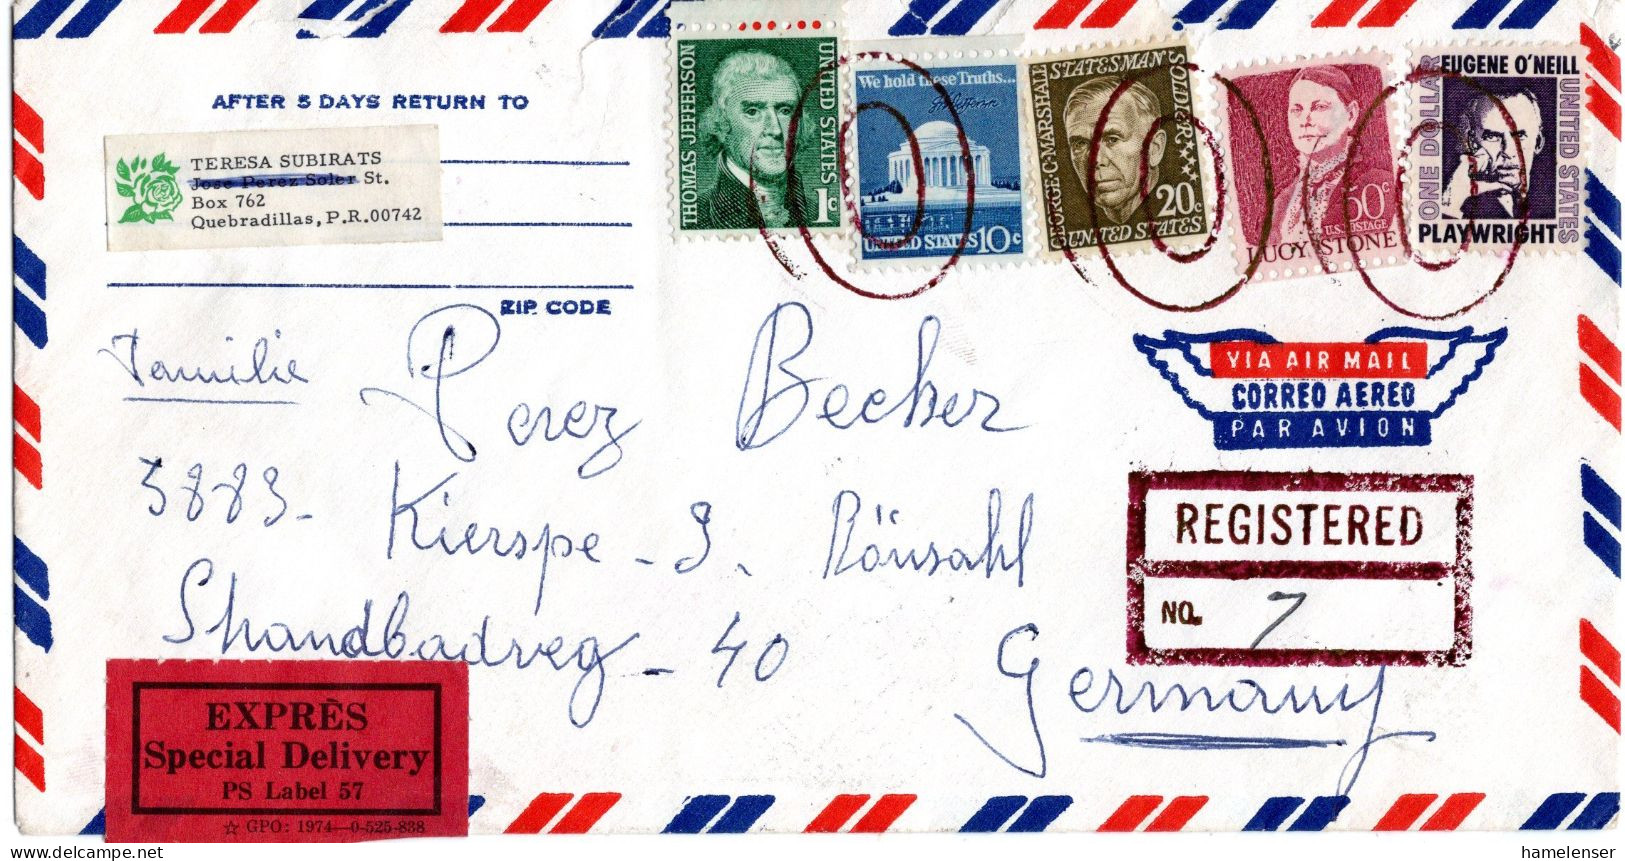 AFTER 5 DAYS RETURN TO
TERESA SUBIRATS
Jose Perez Soler St.
Box 762
Quebradillas, P.R. 00742
ZIP CODE
THOMAS JEFFERSON
UNITED STATES
1c
We hold these Truths...
UNITED STATES 10c
GEORGE·C·MARSHALL STATESMAN SOLDIER
20c
UNITED STATES
50c
U.S. POSTAGE
LUCY STONE
EUGENE O'NEILL
ONE DOLLAR
UNITED STATES
PLAYWRIGHT
VIA AIR MAIL
CORREO AEREO
PAR AVION
REGISTERED
NO. 7
Familie Perez Becker
5883- Kierspe - 3. Rönsahl
Shandbadweg - 40
Germany
EXPRÈS
Special Delivery
PS Label 57
☆ GPO: 1974—0-525-838
delcampe.net
hamelenser